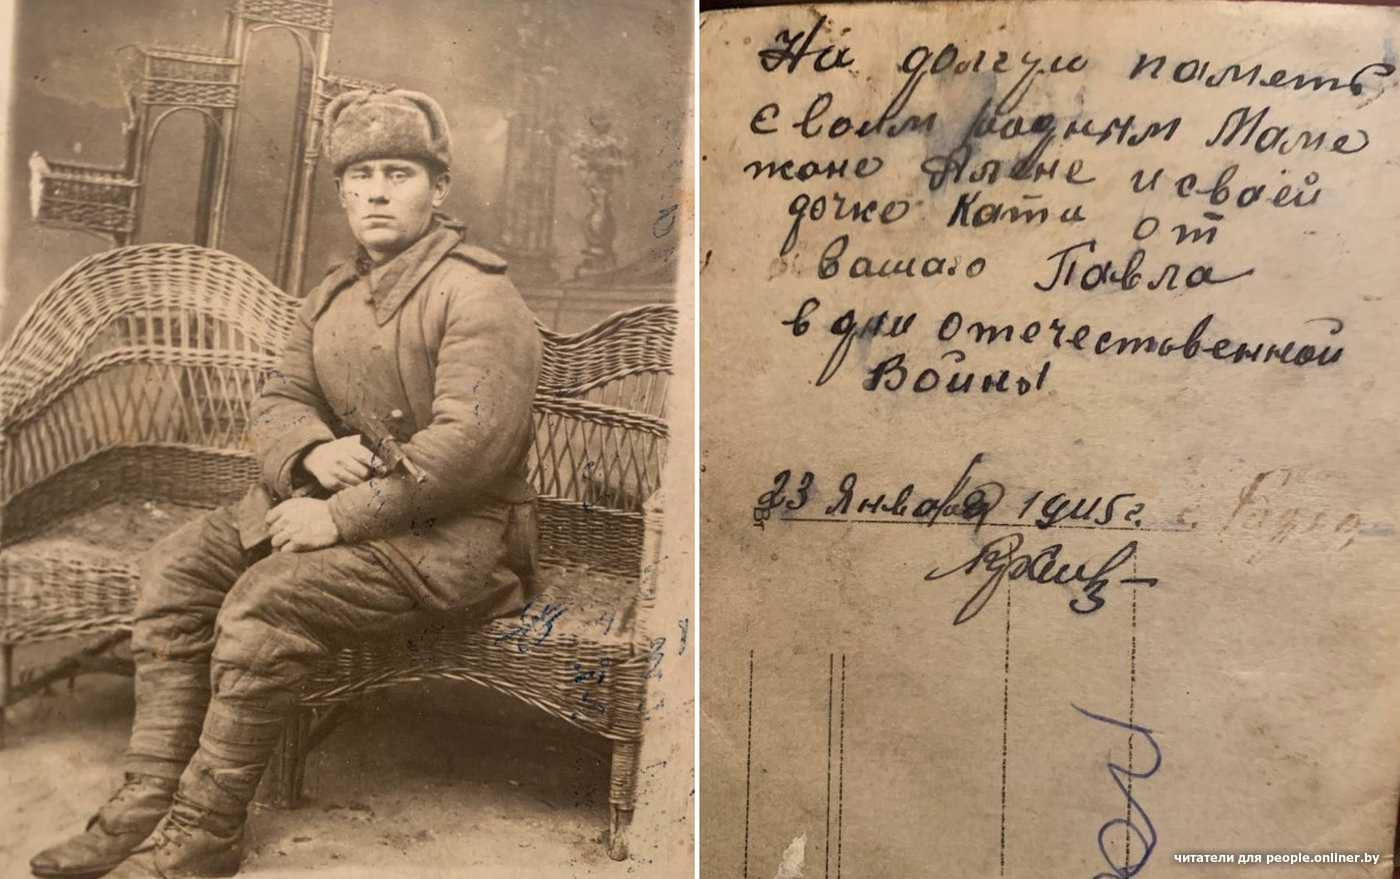 На долгую память
своим родным Маме
жоне Алене и сваей
дочке Кати от
вашаго Павла
в дни отечественной
Войны
23 Января 1945 г. с.
читатели для people.onliner.by